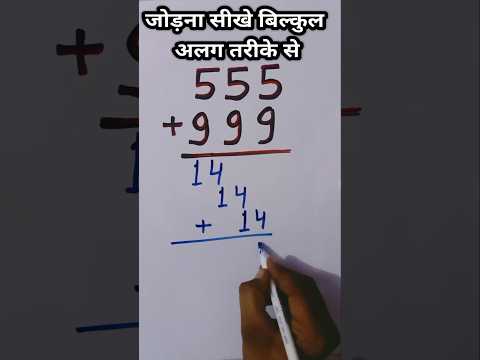 जोड़ना सीखे बिल्कुल
अलग तरीके से
555
+999
14
14
+ 14